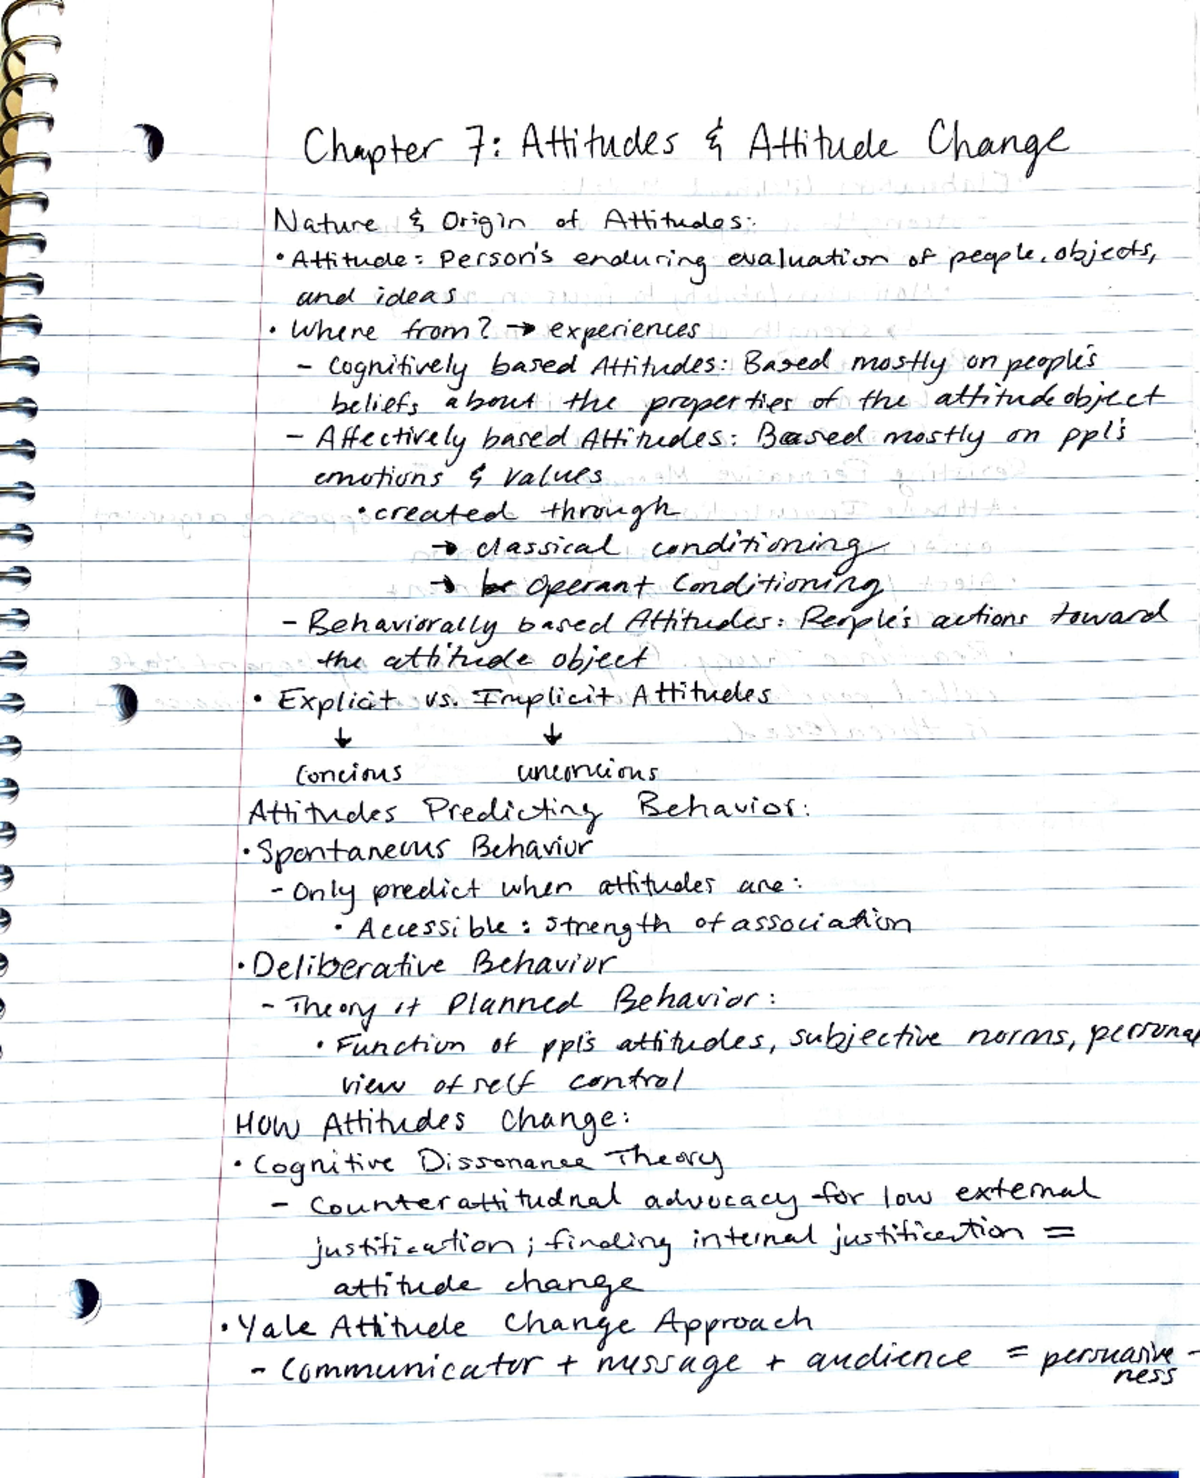 Chapter 7: Attitudes & Attitude Change
Nature & Origin of Attitudes:
• Attitude: Person's enduring evaluation of people, objects,
and ideas
• Where from? → experiences
- Cognitively based Attitudes: Based mostly on people's
beliefs about the properties of the attitude object
- Affectively based Attitudes: Based mostly on ppl's
emotions & values
• created through
→ classical conditioning
→ Operant Conditioning
- Behaviorally based Attitudes: People's actions toward
the attitude object
• Explicit vs. Implicit Attitudes
↓ ↓
Concious unconcious
Attitudes Predicting Behavior:
• Spontaneous Behavior
- Only predict when attitudes are:
• Accessible: strength of association
• Deliberative Behavior
- Theory of Planned Behavior:
• Function of ppl's attitudes, subjective norms, personal
view of self control
How Attitudes Change:
• Cognitive Dissonance Theory
- Counterattitudnal advocacy for low external
justification; finding internal justification =
attitude change
• Yale Attitude Change Approach
- Communicator + message + audience = persuasive-
ness